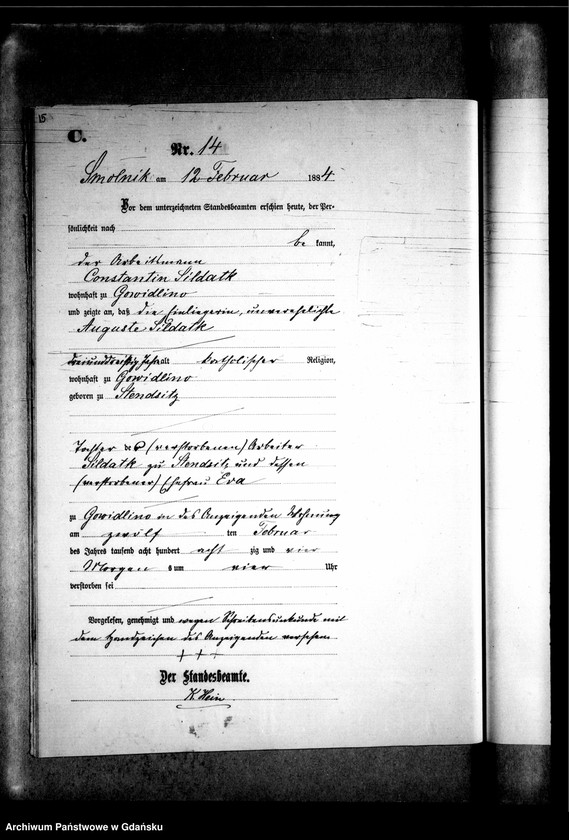 15
C.
Nr. 14
Smolnik am 12 Februar 1884
Vor dem unterzeichneten Standesbeamten erschien heute, der Per-
sönlichkeit nach
be kannt,
der Arbeitsmann
Constantin Sildatk
wohnhaft zu Gowidlino
und zeigte an, daß die Einliegerin, unverehelichte
Auguste Sildatk
dreiunddreißig Jahr alt katholischer Religion,
wohnhaft zu Gowidlino
geboren zu Stendsitz
Tochter des (verstorbenen) Arbeiter
Sildatk zu Stendsitz und dessen
(verstorbener) Ehefrau Eva
zu Gowidlino in des Anzeigenden Wohnung
am zwölf ten Februar
des Jahres tausend acht hundert acht zig und vier
Morgens um vier Uhr
verstorben sei
Vorgelesen, genehmigt und wegen Schreibensunkunde mit
dem Handzeichen des Anzeigenden versehen
+ + +
Der Standesbeamte.
K. Hein
Archiwum Państwowe w Gdańsku